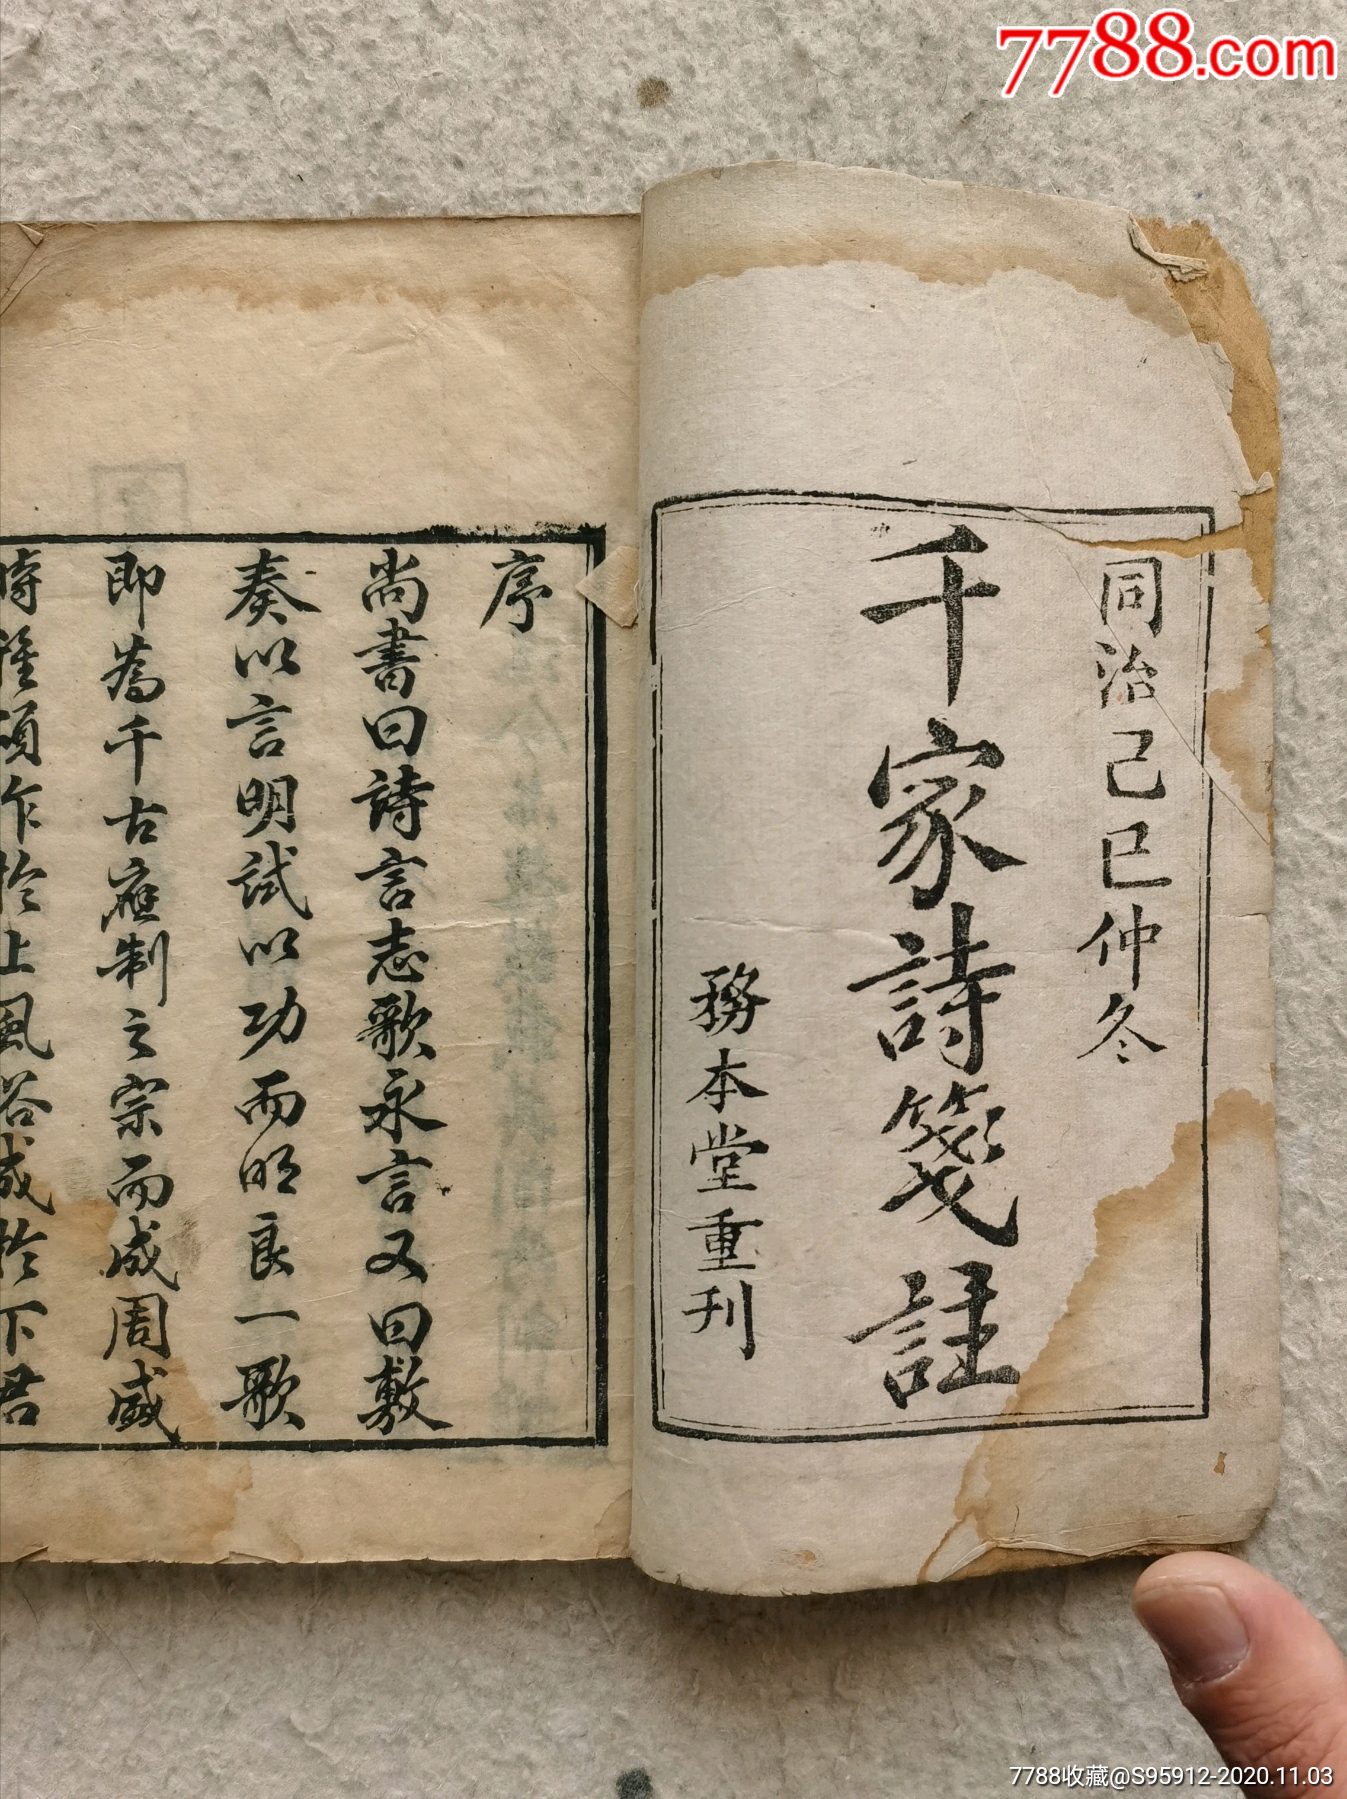 7788.com
同治己巳仲冬
千家詩箋註
務本堂重刊
序
尚書曰詩言志歌永言又曰敷
奏以言明試以功而明良一歌
即為千古應制之宗而成周盛
時雅頌作於上風俗成於下君
7788收藏@S95912-2020.11.03